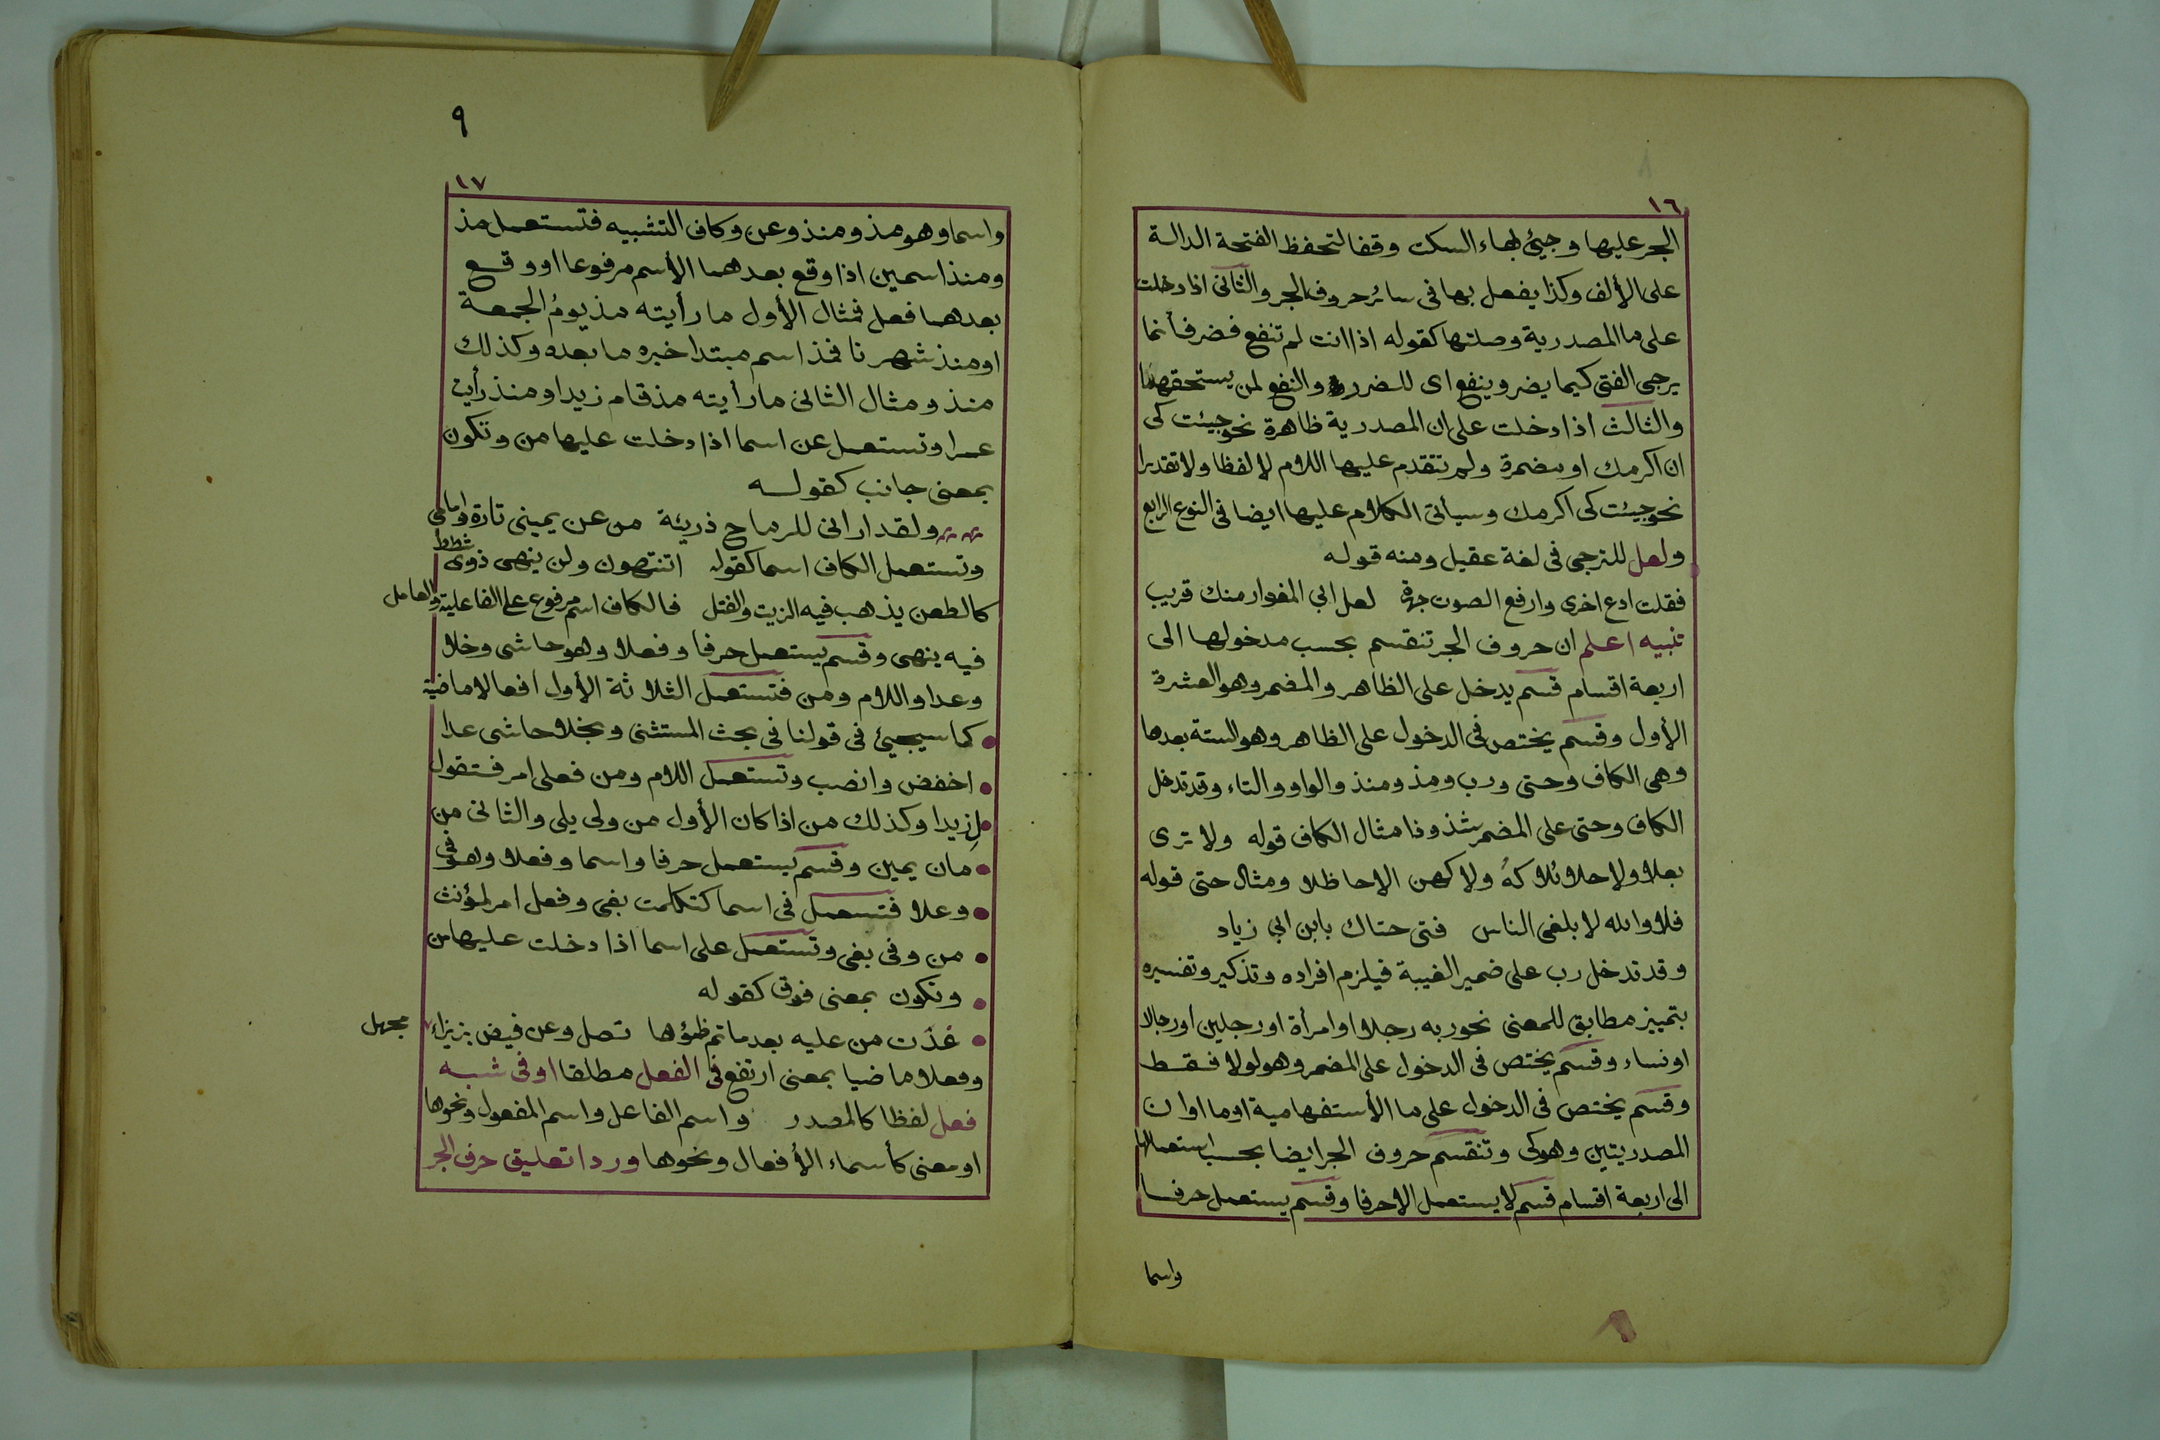 ١٦
الجر عليها وجيئ بهاء السكت وقفا لتحفظ الفتحة الدالة
على الألف وكذا يفعل بها فى سائر حروف الجر والثانى اذا دخلت
على ما المصدرية وصلتها كقوله اذا انت لم تنفع فضر فأنما
يرجى الفتى كيما يضر وينفع اى للضرر والنفع لمن يستحقهما
والثالث اذا دخلت على ان المصدرية ظاهرة نحو جيئت كى
ان اكرمك او مضمرة ولم تتقدم عليها اللام لا لفظا ولا تقديرا
نحو جيئت كى اكرمك وسيأتى الكلام عليها ايضا فى النوع الرابع
ولعل للترجى فى لغة عقيل ومنه قوله
فقلت ادع اخرى وارفع الصوت جهرة لعل ابي المغوار منك قريب
تنبيه اعلم ان حروف الجر تنقسم بحسب مدخولها الى
اربعة اقسام قسم يدخل على الظاهر والمضمر وهو العشرة
الأول وقسم يختص فى الدخول على الظاهر وهو الستة بعدها
وهى الكاف وحتى ورب ومذ ومنذ والواو والتاء وقد تدخل
الكاف وحتى على المضمر شذوذا مثال الكاف قوله ولا ترى
بعلا ولا حلائلا كهُ ولا كهن الا حاظلا ومثال حتى قوله
فلا والله لا يلفى الناس فتى حتاك يا بن ابي زياد
وقد تدخل رب على ضمير الغيبة فيلزم افراده وتذكير وتفسيره
بتمييز مطابق للمعنى نحو ربه رجلا او امرأة او رجلين او رجالا
او نساء وقسم يختص فى الدخول على المضمر وهو لولا فقط
وقسم يختص فى الدخول على ما الأستفهامية او ما او ان
المصدريتين وهو كى وتنقسم حروف الجر ايضا بحسب استعمالها
الى اربعة اقسام قسم لا يستعمل الا حرفا وقسم يستعمل حرفا
واسما
٩
١٧
واسما وهو مذ ومنذ وعن وكاف التشبيه فتستعمل مذ
ومنذ اسمين اذا وقع بعدهما الأسم مرفوعا او وقع
بعدهما فعل فمثال الأول ما رأيته مذ يومُ الجمعة
او منذ شهرنا فمذ اسم مبتدا خبره ما بعده وكذلك
منذ ومثال الثانى ما رأيته مذ قام زيد او منذ رأيت
عمرا وتستعمل عن اسما اذا دخلت عليها من وتكون
بمعنى جانب كقوله
ولقد ارانى للرماح ذريئة من عن يمينى تارة وامامى
وتستعمل الكاف اسما كقوله اتنتهون ولن ينهى ذوى شطط
كالطعن يذهب فيه الزيت والفتل فالكاف اسم مرفوع على الفاعلية والعامل
فيه ينهى وقسم يستعمل حرفا وفعلا وهو حاشى وخلا
وعدا واللام ومن فتستعمل الثلاثة الأول افعالا ماضية
كما سيجيئ فى قولنا فى بحث المستثنى وبخلا حاشى عدا
اخفض وانصب وتستعمل اللام ومن فعلى امر فتقول
لِ زيدا وكذلك من اذا كان الأول من ولى يلى والثانى من
مان يمين وقسم يستعمل حرفا واسما وفعلا وهو فى
وعلا فتستعمل فى اسما كتكلمت بفى وفعل امر لمؤنث
من وفى يفى وتستعمل على اسما اذا دخلت عليها من
وتكون بمعنى فوق كقوله
غدَت من عليه بعد ما تم ظمؤها تصل وعن فيض بزيزاء مجهل
وفعلا ماضيا بمعنى ارتفع فى الفعل مطلقا او فى شبه
فعل لفظا كالمصدر واسم الفاعل واسم المفعول ونحوها
او معنى كأسماء الأفعال ونحوها وردا تعليق حرف الجر